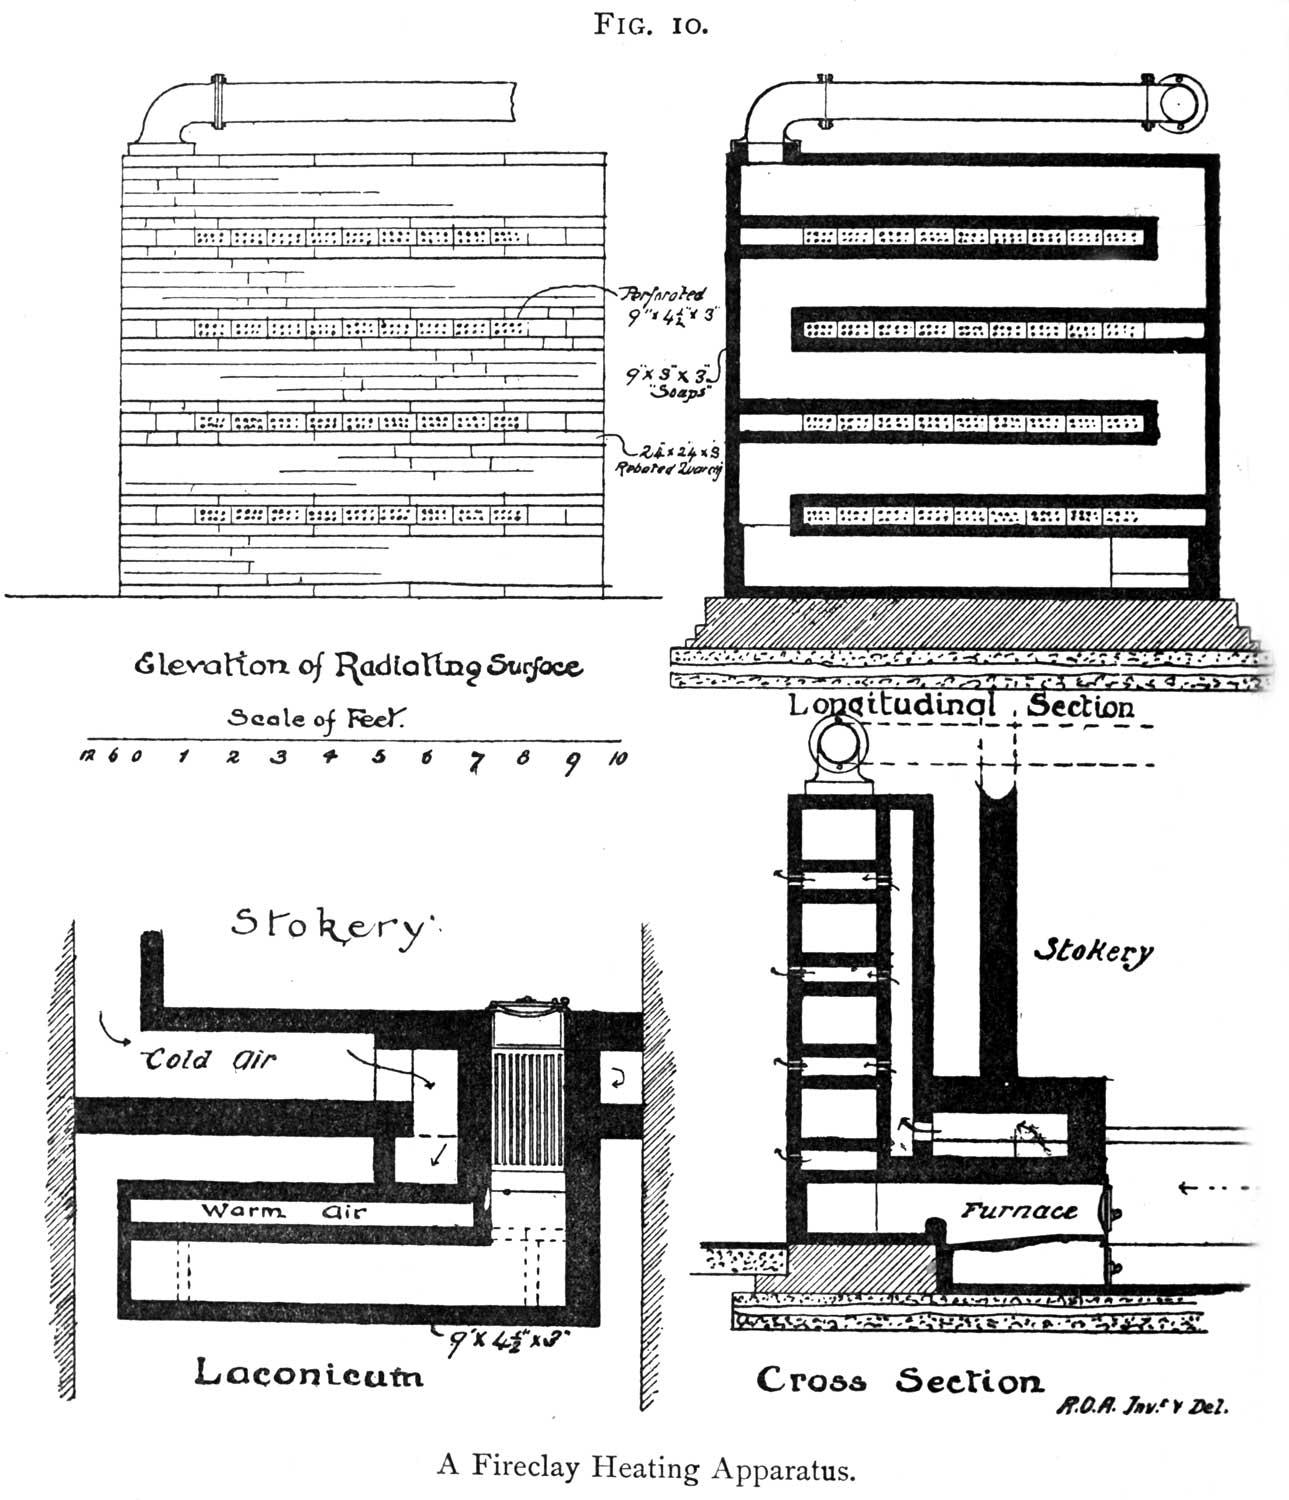 FIG. 10.
Perforated
9" x 4½" x 3"
9" x 3" x 3"
"Soaps"
24 x 24 x 3
Rebated Quarry
Elevation of Radiating Surface
Scale of Feet.
12 6 0 1 2 3 4 5 6 7 8 9 10
Longitudinal Section
Stokery
Cold air
Warm air
9" x 4½" x 3"
Laconicum
Stokery
Furnace
Cross Section
R.O.A. Inv.t & Del.
A Fireclay Heating Apparatus.